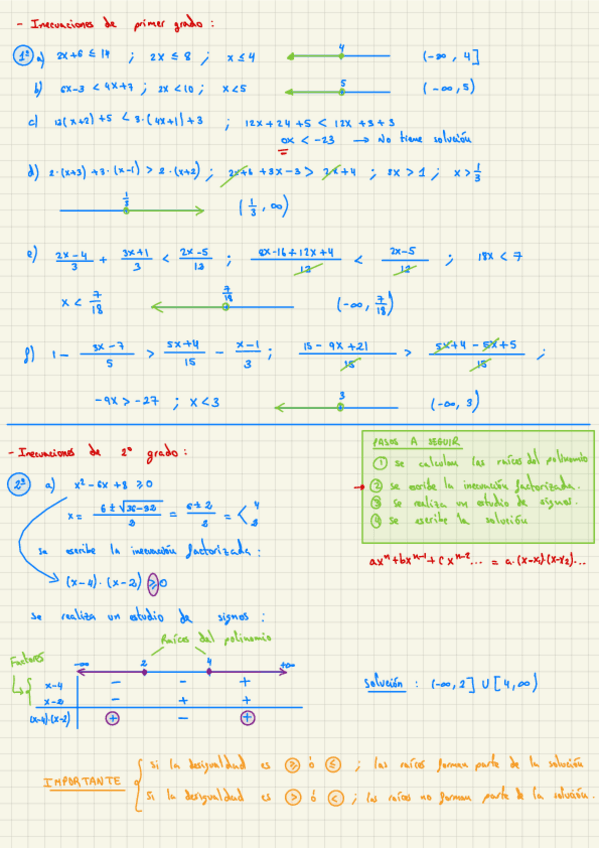 - Inecuaciones de primer grado :
1º a) 2x+6 ≤ 14 ; 2x ≤ 8 ; x ≤ 4 4 (-∞ , 4]
b) 6x-3 < 4x+7 ; 2x < 10 ; x < 5 5 (-∞, 5)
c) 12(x+2) +5 < 3·(4x+1) +3 ; 12x+24+5 < 12x+3+3
0x < -23 → No tiene solución
d) 2·(x+3) +3·(x-1) > 2·(x+2) ; 2x+6 +3x-3 > 2x+4 ; 3x > 1 ; x > 1/3
1/3 (1/3 , ∞)
e) (2x-4)/3 + (3x+1)/3 < (2x-5)/12 ; (8x-16+12x+4)/12 < (2x-5)/12 ; 18x < 7
x < 7/18 7/18 (-∞, 7/18)
f) 1 - (3x-7)/5 > (5x+4)/15 - (x-1)/3 ; (15-9x+21)/15 > (5x+4-5x+5)/15 ;
-9x > -27 ; x < 3 3 (-∞, 3)
- Inecuaciones de 2º grado :
PASOS A SEGUIR
1 se calculan las raíces del polinomio
2 se escribe la inecuación factorizada.
3 se realiza un estudio de signos.
4 se escribe la solución
2º a) x² - 6x + 8 ≥ 0
x = (6 ± √(36-32))/2 = (6 ± 2)/2 = < 4 2
se escribe la inecuación factorizada :
axⁿ + bxⁿ⁻¹ + cxⁿ⁻² ... = a·(x-x₁)(x-x₂)...
(x-4) · (x-2) ≥ 0
se realiza un estudio de signos :
Raíces del polinomio
Factores
-∞ 2 4 +∞
x-4 - - +
x-2 - + +
(x-4)·(x-2) + - +
Solución : (-∞, 2] U [4, ∞)
IMPORTANTE
si la desigualdad es ≥ ó ≤ ; las raíces forman parte de la solución
si la desigualdad es > ó < ; las raíces no forman parte de la solución.